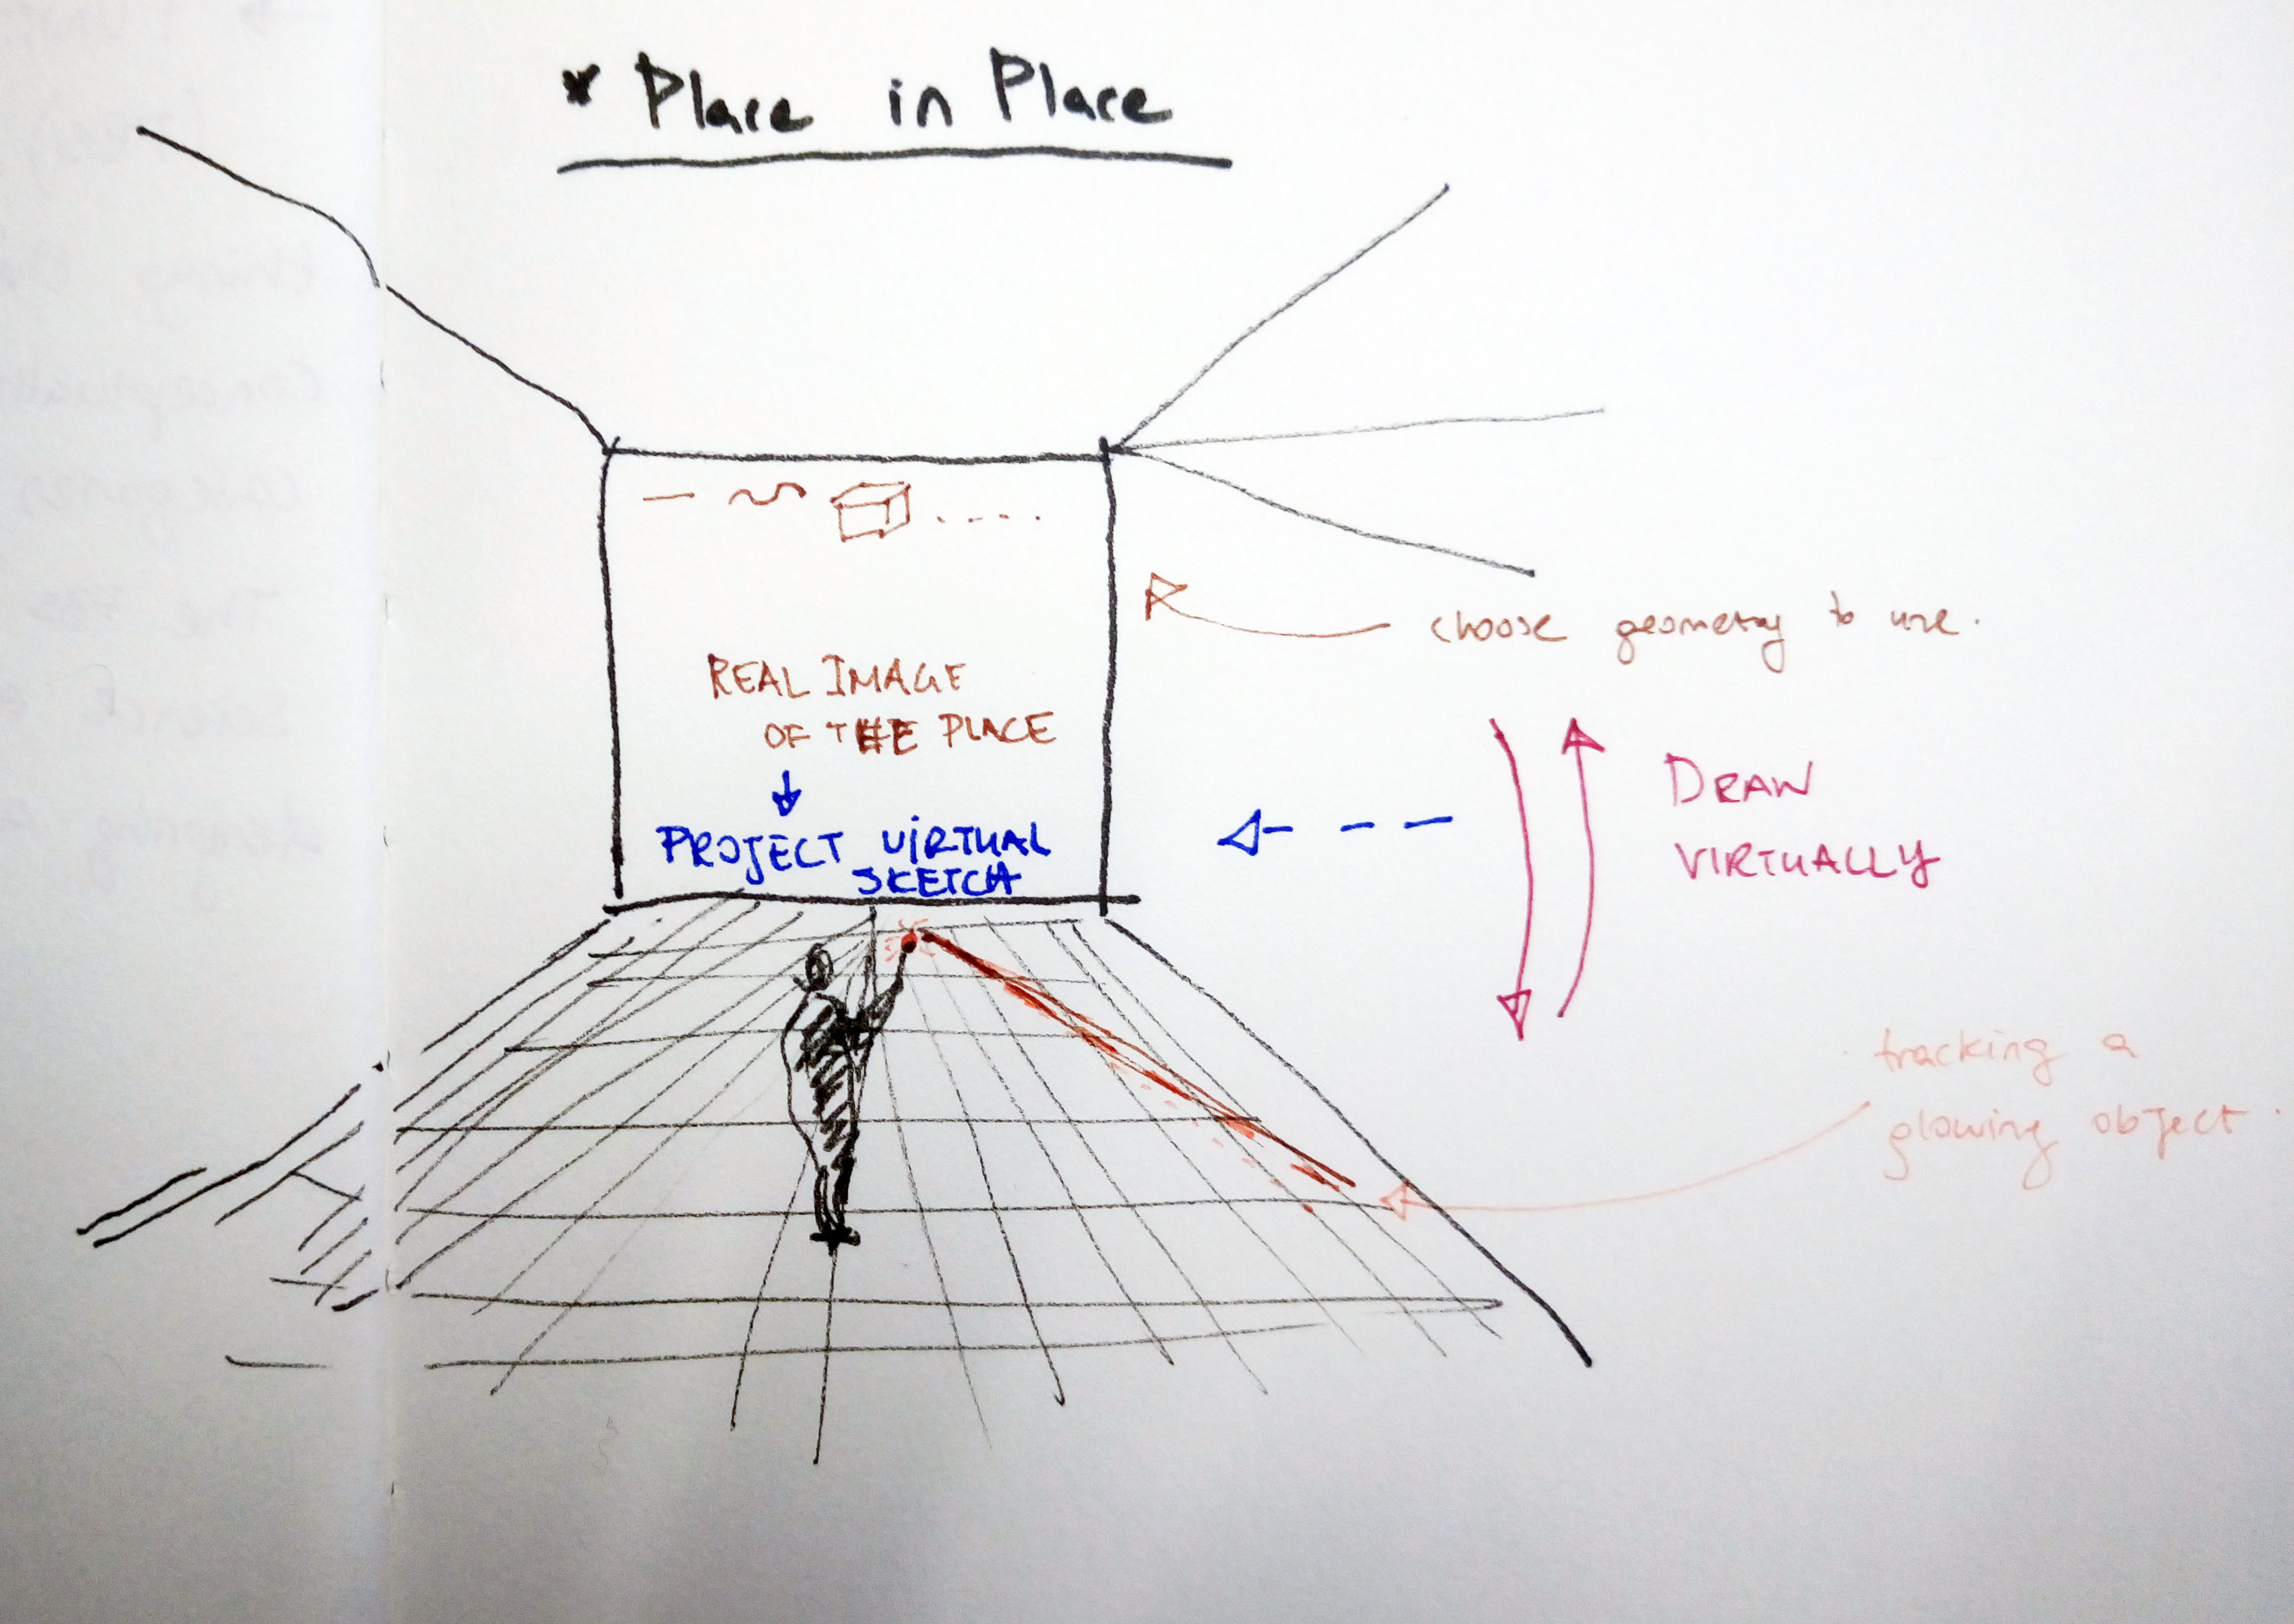 * Place in Place
choose geometry to use.
REAL IMAGE
OF THE PLACE
PROJECT VIRTUAL
SKETCH
DRAW
VIRTUALLY
tracking a
glowing object.